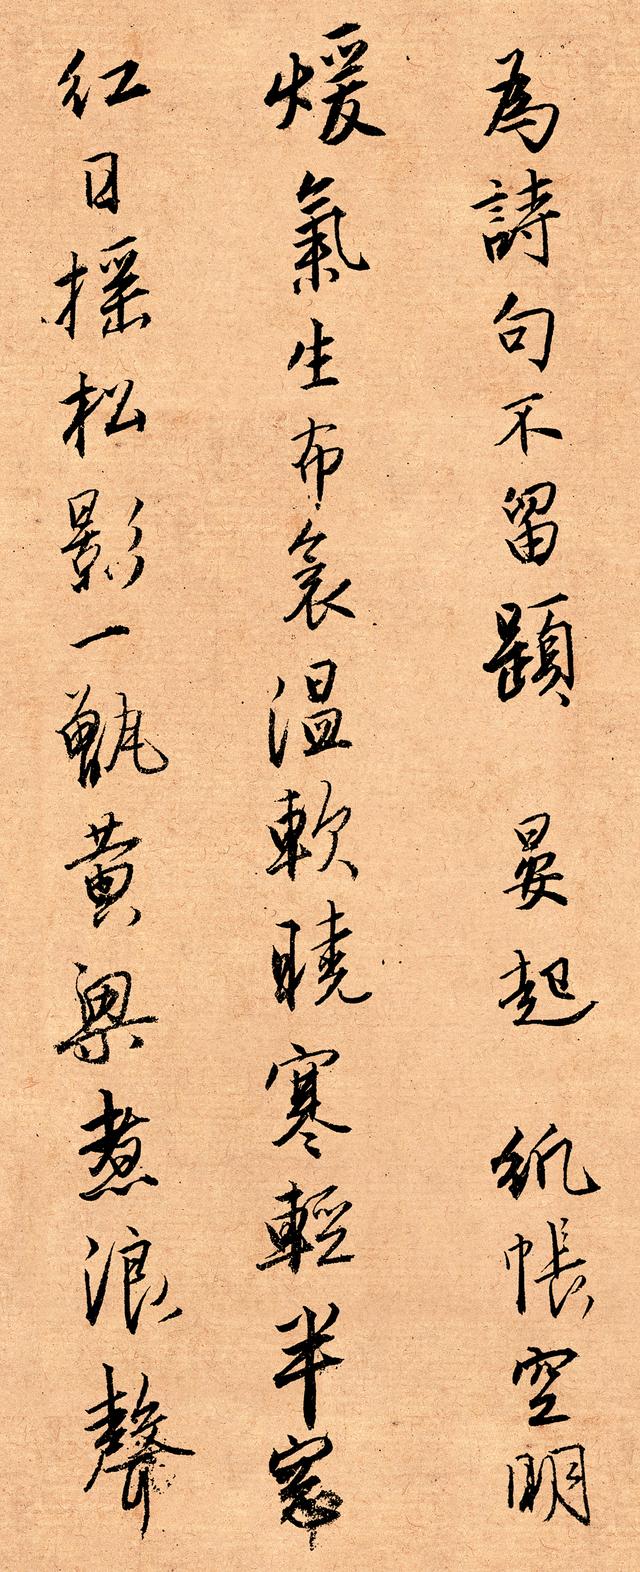 為詩句不留題 晏起 紙帳空明
煖氣生布衾溫軟曉寒輕半窓
紅日搖松影一甑黃粱煮浪聲